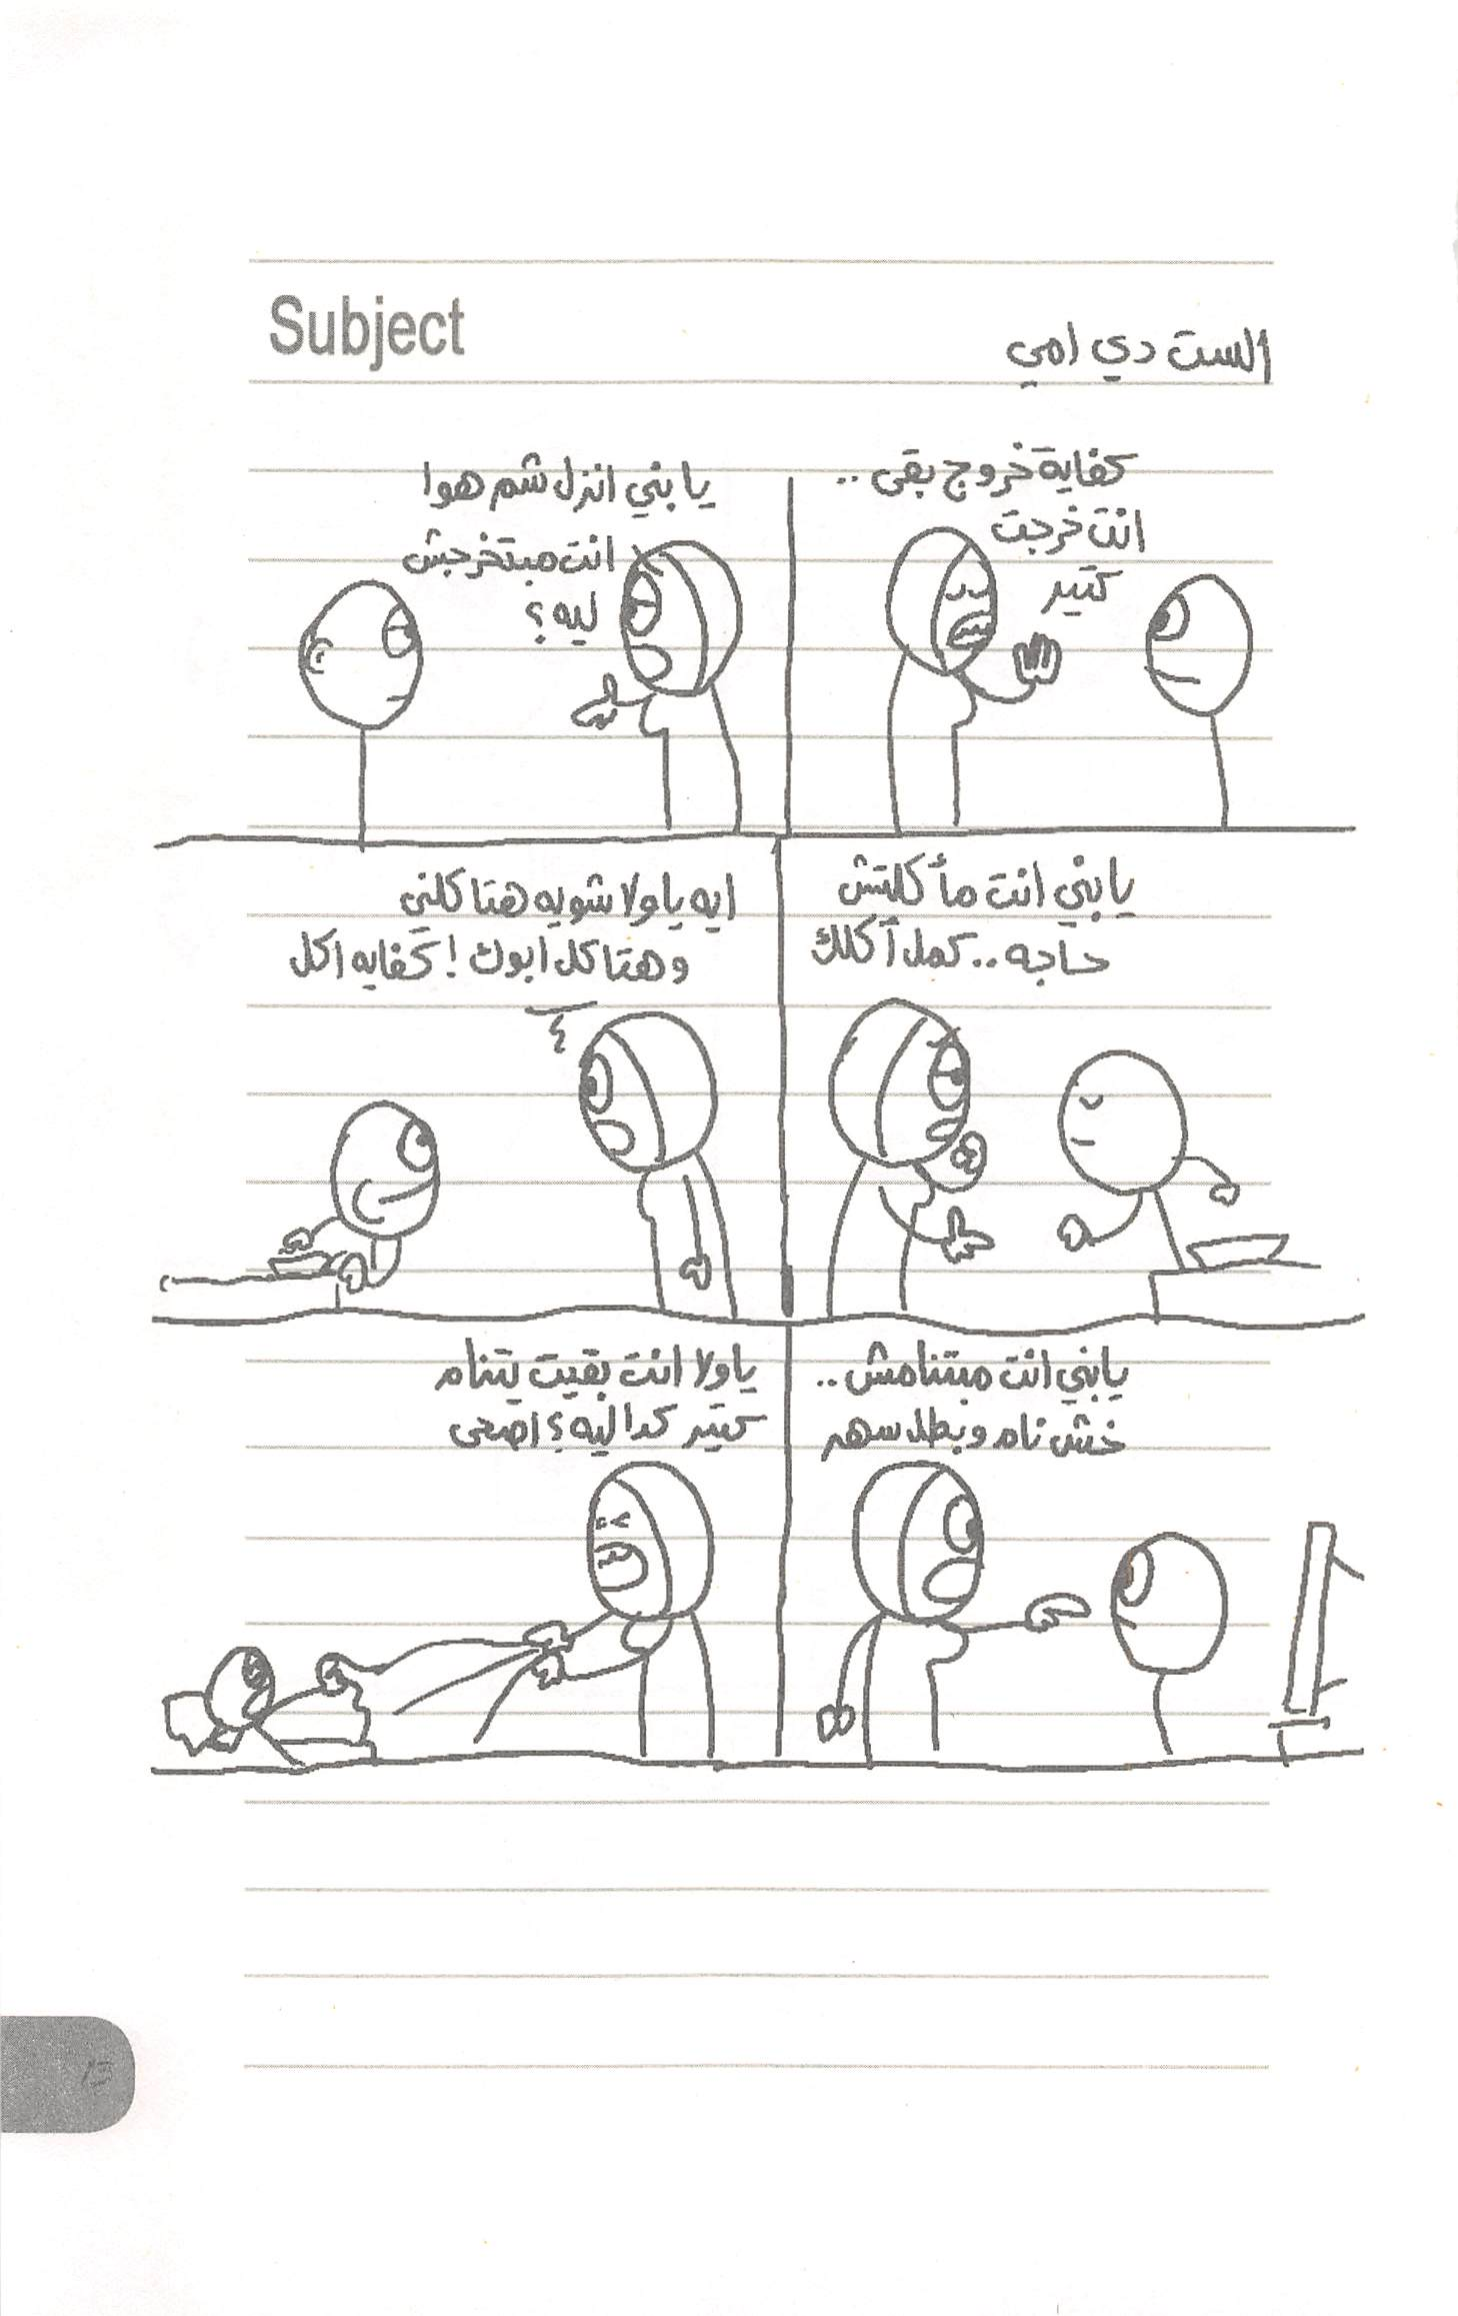 Subject
الست دي امي
كفاية خروج بقى ..
انت خرجت
كتير
يا بني انزل شم هوا
انت مبتخرجش
ليه؟
يابني انت مأكلتش
حاجه .. كمل أكلك
ايه ياولا شويه هتاكلني
وهتاكل ابوك! كفايه اكل
يابني انت مبتنامش ..
خش نام وبطل سهر
ياولا انت بقيت بتنام
كتير كدا ليه؟ اصحى